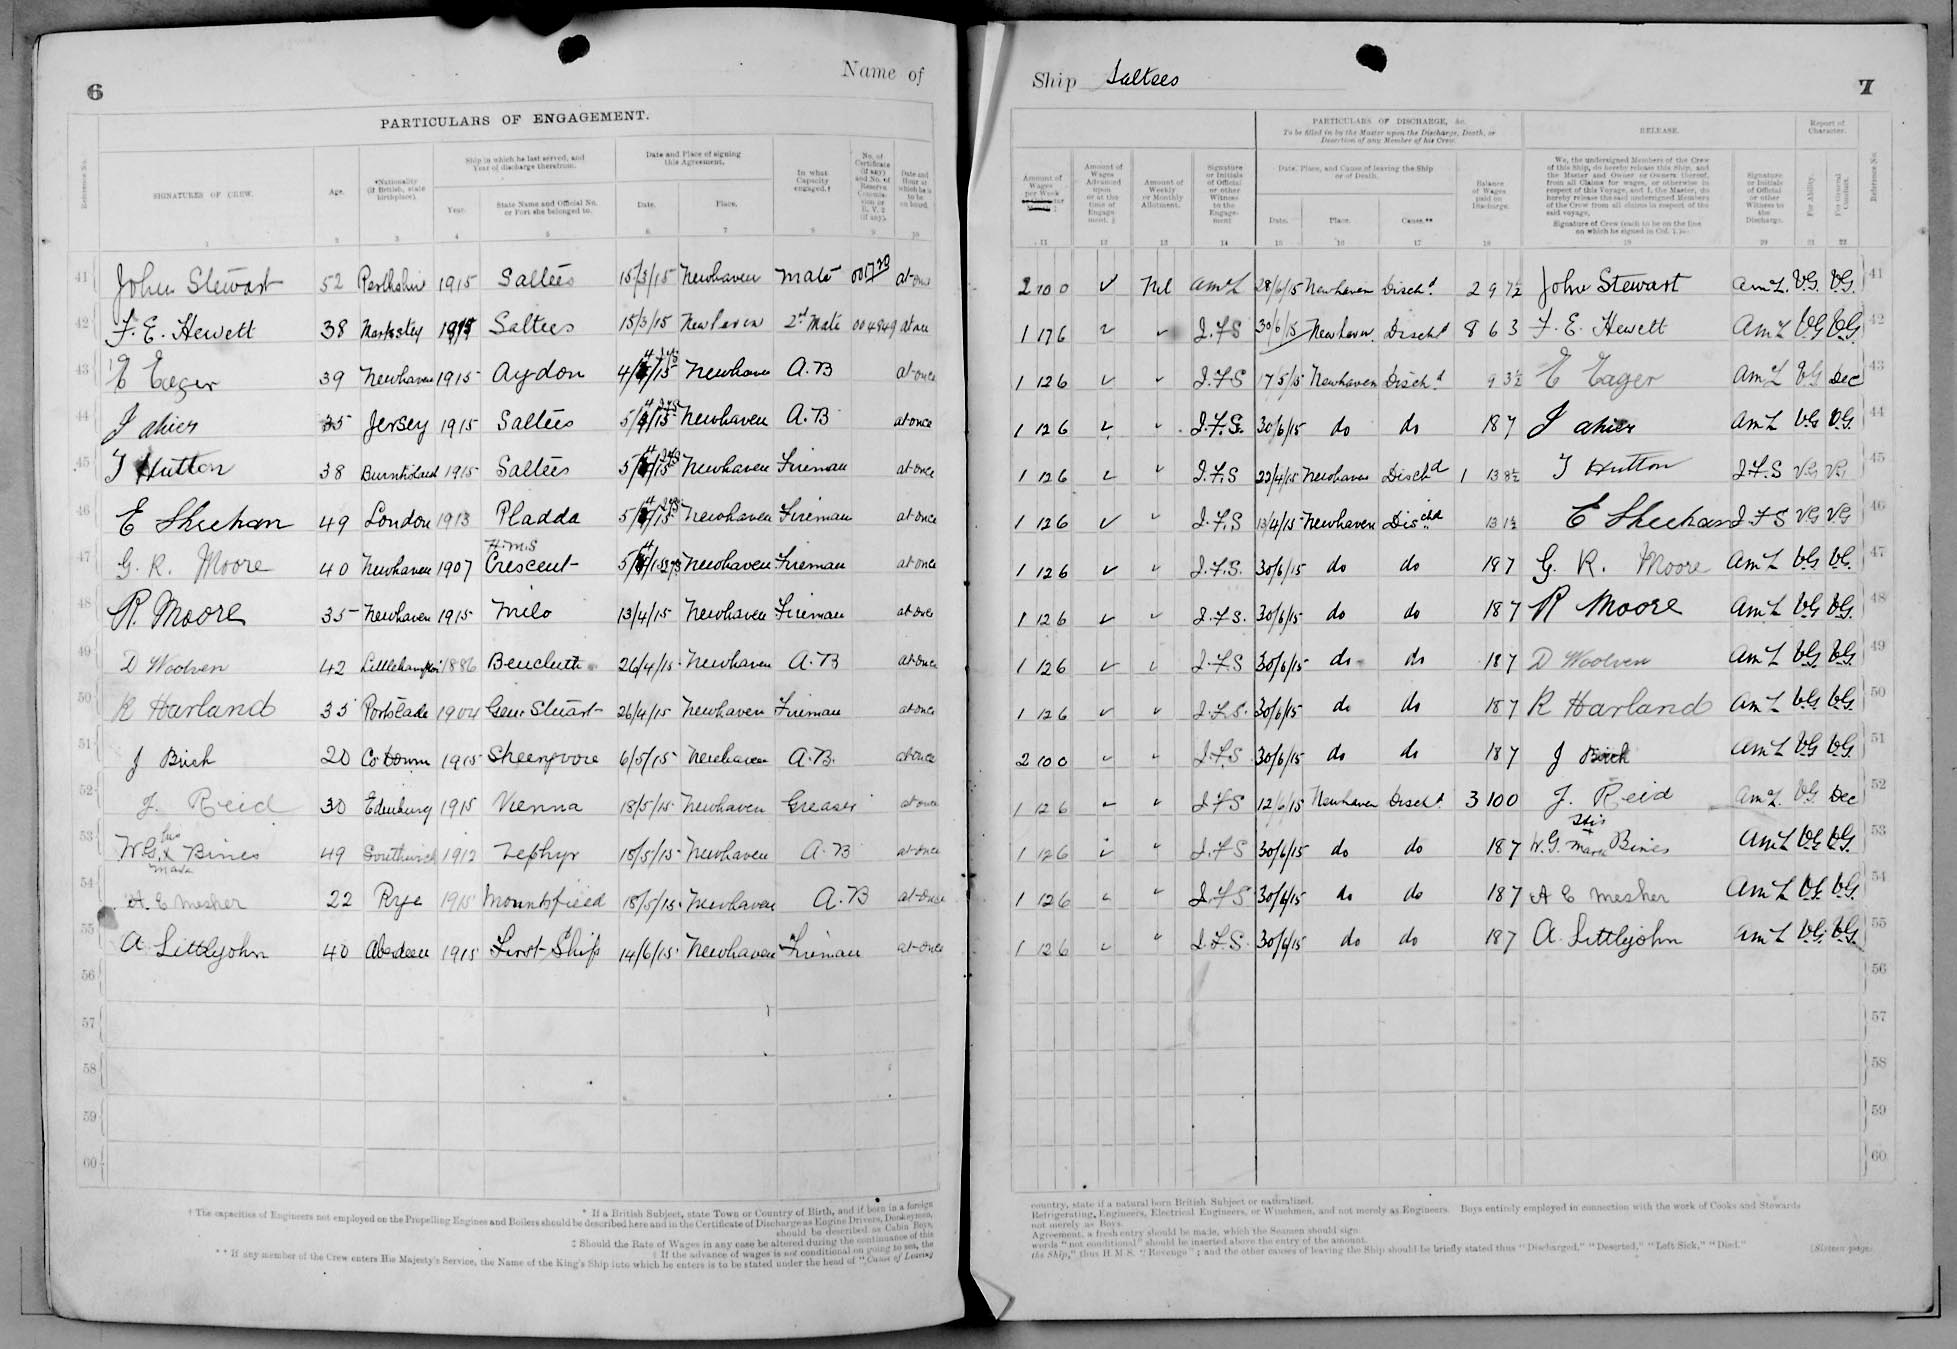 6
Name of
PARTICULARS OF ENGAGEMENT.
Reference No.
SIGNATURES OF CREW.
Age.
*Nationality (If British, state birthplace).
Ship in which he last served, and Year of discharge therefrom.
Year.
State Name and Official No. or Port she belonged to.
Date and Place of signing this Agreement.
Date.
Place.
In what Capacity engaged.†
No. of Certificate (if any)
Date and Hour at which he is to be on board.
1 2 3 4 5 6 7 8 9 10
41 John Stewart 52 Perthshire 1915 Saltees 15/3/15 Newhaven Mate 001720 at once
42 F. E. Hewett 38 1915 Saltees 15/3/15 Newhaven 2nd Mate 004849 at once
43 E Eager 39 Newhaven 1915 Aydon 4/4/15 Newhaven A.B at once
44 J ahier 35 Jersey 1915 Saltees 5/4/15 Newhaven A.B at once
45 T Hutton 38 Burntisland 1915 Saltees 5/4/15 Newhaven Fireman at once
46 E Sheehan 49 London 1913 Pladda 5/4/15 Newhaven Fireman at once
47 G. R. Moore 40 Newhaven 1907 H.M.S Crescent 5/4/15 Newhaven Fireman at once
48 R. Moore 35 Newhaven 1915 Milo 13/4/15 Newhaven Fireman at once
49 D Woolven 42 Littlehampton 1886 26/4/15 Newhaven A.B at once
50 R Harland 35 Portslade 1904 Genl Stuart 26/4/15 Newhaven Fireman at once
51 J Birch 20 Co Down 1915 6/5/15 Newhaven A.B. at once
52 J. Reid 30 Edinburg 1915 Vienna 18/5/15 Newhaven Greaser at once
53 W.G. his x mark Bines 49 Southwick 1912 Zephyr 18/5/15 Newhaven A.B at once
54 A. E Mesher 22 Rye 1915 Mountsfield 18/5/15 Newhaven A.B at once
55 A. Littlejohn 40 Aberdeen 1915 First Ship 14/6/15 Newhaven Fireman at once
56
57
58
59
60
* If a British Subject, state Town or Country of Birth, and if born in a foreign
† The capacities of Engineers not employed on the Propelling Engines and Boilers should be described here and in the Certificate of Discharge as Engine Drivers, Donkeymen,
should be described as Cabin Boys,
‡ Should the Rate of Wages in any case be altered during the continuance of this
§ If the advance of wages is not conditional on going to sea, the
** If any member of the Crew enters His Majesty's Service, the Name of the King's Ship into which he enters is to be stated under the head of "Cause of Leaving
Ship Saltees
7
PARTICULARS OF DISCHARGE, &c.
To be filled in by the Master upon the Discharge, Death, or Desertion of any Member of his Crew.
RELEASE.
Report of Character.
Amount of Wages per Week
Amount of Wages Advanced upon or at the time of Engagement.
Amount of Weekly or Monthly Allotment.
Signature or Initials of Official or other Witness to the Engagement
Date, Place, and Cause of leaving the Ship or of Death.
Date.
Place.
Cause.**
Balance of Wages paid on Discharge.
We, the undersigned Members of the Crew of this Ship, do hereby release this Ship, and the Master and Owner or Owners thereof, from all Claims for wages, or otherwise in respect of this Voyage, and I, the Master, do hereby release the said undersigned Members of the Crew from all claims in respect of the said voyage.
Signature of Crew (each to be on the line on which he signed in Col. 1.)
Signature or Initials of Official or other Witness to the Discharge.
For Ability.
For General Conduct.
Reference No.
11 12 13 14 15 16 17 18 19 20 21 22
2 10 0 ✓ Nil AmL 28/6/15 Newhaven Dischd 2 9 7½ John Stewart AmL. V.G. V.G. 41
1 17 6 ✓ " J.F.S 30/6/15 Newhaven Dischd 8 6 3 F. E. Hewett AmL V.G V.G. 42
1 12 6 ✓ " J.F.S 17/5/15 Newhaven Dischd 9 3½ E Eager AmL V.G Dec 43
1 12 6 ✓ " J.F.S. 30/6/15 do do 18 7 J ahier AmL V.G V.G. 44
1 12 6 ✓ " J.F.S 22/4/15 Newhaven Dischd 1 13 8½ T Hutton J.F.S V.G V.G 45
1 12 6 ✓ " J.F.S 13/4/15 Newhaven Dischd 13 1½ E Sheehan J.F.S V.G V.G 46
1 12 6 ✓ " J.F.S. 30/6/15 do do 18 7 G. R. Moore AmL V.G V.G. 47
1 12 6 ✓ " J.F.S. 30/6/15 do do 18 7 R Moore AmL V.G. V.G. 48
1 12 6 ✓ " J.F.S 30/6/15 do do 18 7 D Woolven AmL V.G V.G. 49
1 12 6 ✓ " J.F.S. 30/6/15 do do 18 7 R Harland AmL V.G V.G. 50
2 10 0 ✓ " J.F.S 30/6/15 do do 18 7 J Birch AmL V.G V.G. 51
1 12 6 ✓ " J.F.S 12/6/15 Newhaven Dischd. 3 10 0 J. Reid AmL. V.G. Dec 52
1 12 6 ✓ " J.F.S 30/6/15 do do 18 7 W.G. His x mark Bines AmL V.G V.G. 53
1 12 6 ✓ " J.F.S 30/6/15 do do 18 7 A E Mesher AmL V.G V.G. 54
1 12 6 ✓ " J.F.S. 30/6/15 do do 18 7 A. Littlejohn AmL V.G. V.G. 55
56
57
58
59
60
country, state if a natural born British Subject or naturalized.
Refrigerating, Engineers, Electrical Engineers, or Winchmen, and not merely as Engineers. Boys entirely employed in connection with the work of Cooks and Stewards
not merely as Boys.
Agreement, a fresh entry should be made, which the Seamen should sign.
words "not conditional" should be inserted above the entry of the amount.
the Ship," thus H.M.S. "Revenge"; and the other causes of leaving the Ship should be briefly stated thus "Discharged," "Deserted," "Left Sick," "Died."
[Sixteen page